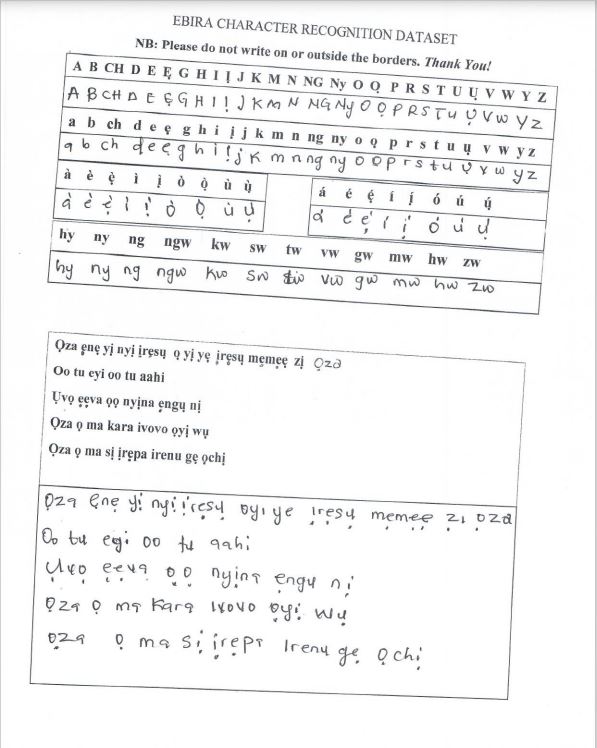 EBIRA CHARACTER RECOGNITION DATASET
NB: Please do not write on or outside the borders. Thank You!
A B CH D E Ẹ G H I Ị J K M N NG Ny O Ọ P R S T U Ụ V W Y Z
A B CH D E Ẹ G H I Ị J K M N NG Ny O Ọ P R S T U Ụ V W Y Z
a b ch d e ẹ g h i ị j k m n ng ny o ọ p r s t u ụ v w y z
a b ch d e ẹ g h i ị j k m n ng ny o ọ p r s t u ụ v w y z
à è ẹ̀ ì ị̀ ò ọ̀ ù ụ̀
à è ẹ̀ ì ị̀ ò ọ̀ ù ụ̀
á é ẹ́ í ị́ ó ú ụ́
á é ẹ́ í ị́ ó ú ụ́
hy ny ng ngw kw sw tw vw gw mw hw zw
hy ny ng ngw kw sw tw vw gw mw hw zw
Ọza ẹnẹ yị nyị ịrẹsụ ọ yị yẹ ịrẹsụ mẹmẹẹ zị ọza
Oo tu eyi oo tu aahi
Ụvọ ẹẹva ọọ nyịna ẹngụ nị
Ọza ọ ma kara ivovo ọyị wụ
Ọza ọ ma sị ịrẹpa irenu gẹ ọchị
Ọza ẹnẹ yị nyị ịrẹsụ ọyị yẹ ịrẹsụ mẹmẹẹ zị ọza
Oo tu eyi oo tu aahi
Ụvọ ẹẹva ọọ nyịna ẹngụ nị
Ọza ọ ma kara ivovo ọyị wụ
ọza ọ ma sị ịrẹpa irenu gẹ ọchị